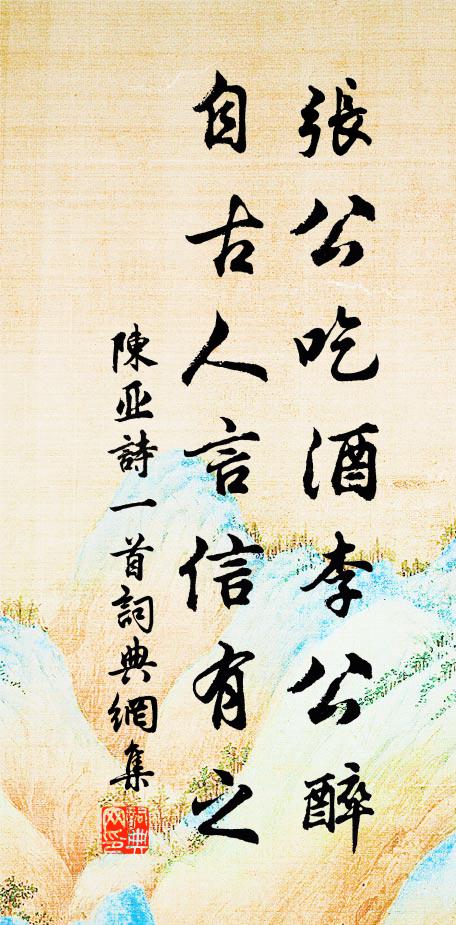 張公吃酒李公醉
自古人言信有之
陳亚詩一首詞典網集
詞典網印